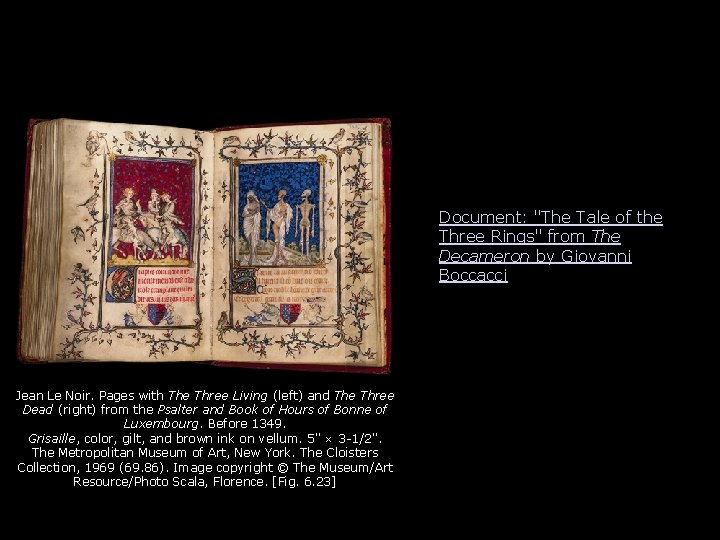 Document: "The Tale of the
Three Rings" from The
Decameron by Giovanni
Boccacci
Jean Le Noir. Pages with The Three Living (left) and The Three
Dead (right) from the Psalter and Book of Hours of Bonne of
Luxembourg. Before 1349.
Grisaille, color, gilt, and brown ink on vellum. 5" × 3-1/2".
The Metropolitan Museum of Art, New York. The Cloisters
Collection, 1969 (69.86). Image copyright © The Museum/Art
Resource/Photo Scala, Florence. [Fig. 6.23]